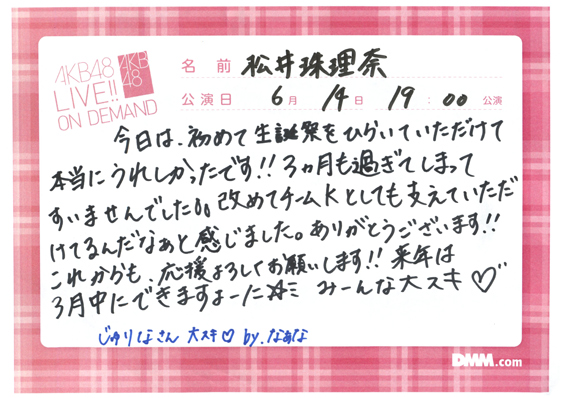 AKB48
LIVE!!
ON DEMAND
AKB
48
名 前 松井珠理奈
公演日 6月 14日 19:00 公演
今日は、初めて生誕祭をひらいていただけて
本当にうれしかったです!!3ヵ月も過ぎてしまって
すいませんでした。。改めてチームKとしても支えていただ
けてるんだなぁと感じました。ありがとうございます!!
これからも、応援よろしくお願いします!!来年は
3月中にできますよーに☆ミ みーんな大スキ♡
じゅりなさん 大スキ♡ by.なぁな
DMM.com